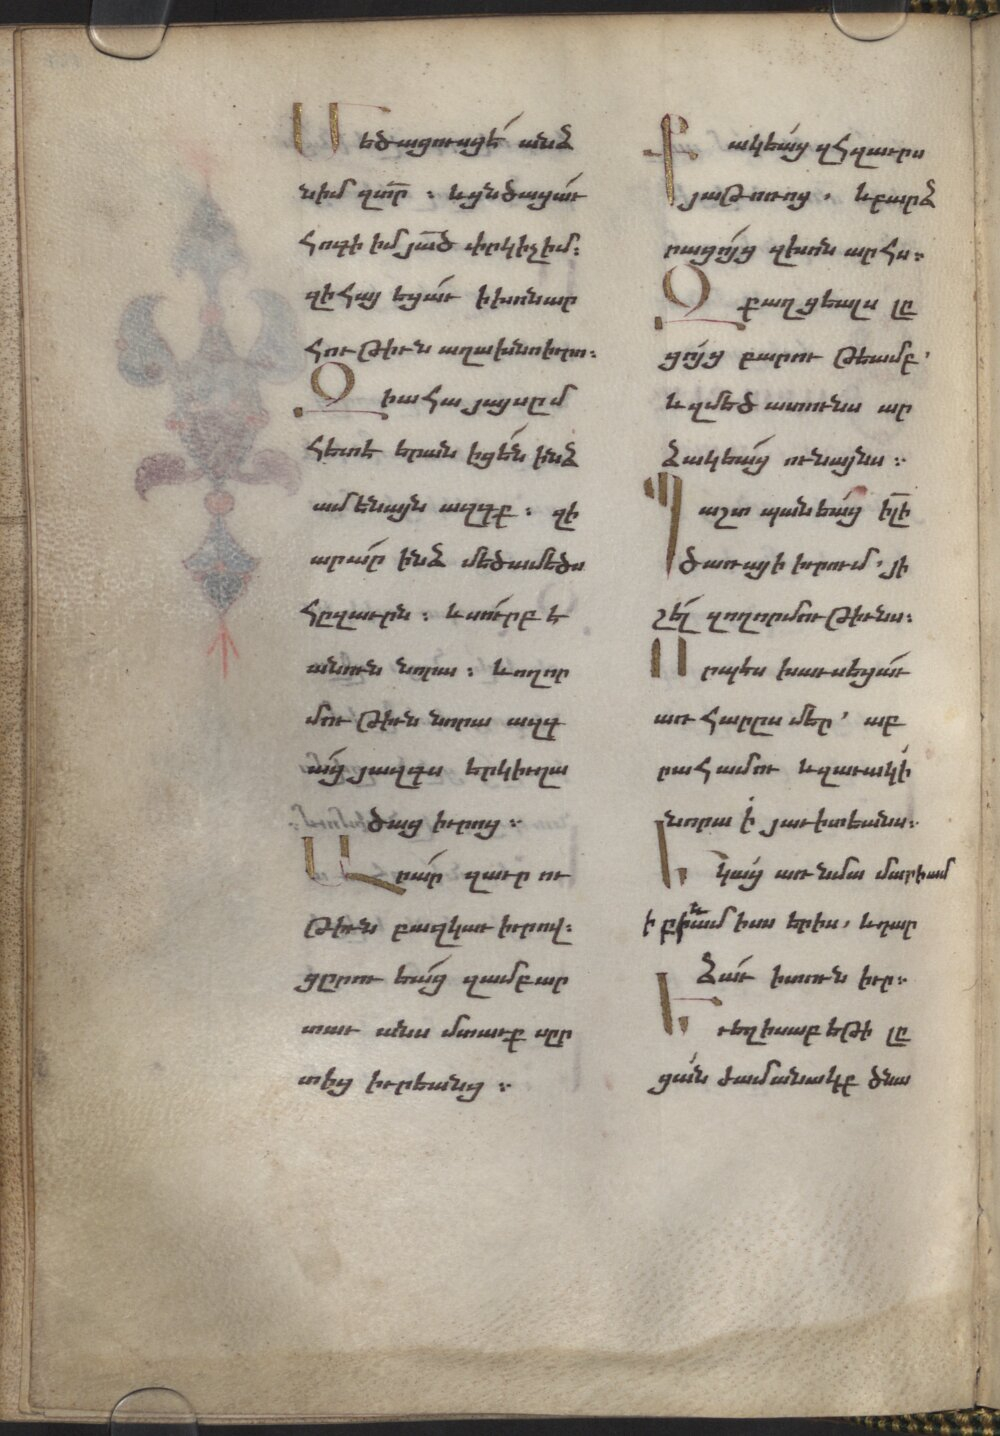 Մեծացուսցէ անձ
նիմ զտր ։ և ցնծացաւ
հոգի իմ յած փրկիչ իմ։
զի հայեցաւ ի խոնար
հութիւն աղախնո իւրո։
Զի ահա յայսըմ
հետէ երանիցեն ինձ
ամենայն ազգք ։ զի
արար ինձ մեծամեծս
հըզաւրն ։ և սուրբ է
անուն նորա ։ և ողոր
մութիւն նորա ազգ
աց յազգս երկիւղա
ծաց իւրոց ։
Արար զաւրու
թիւն բազկաւ իւրով։
ցըրուեաց զամբար
տաւանս մտաւք սըր
տից իւրեանց ։
Քակեաց զհզաւրս
յաթոռոց , և բարձ
րացոյց զխոնարհս։
Զքաղցեալս լը
ցոյց բարութեամբ ՝
և զմեծատունս ար
ձակեաց ունայնս ։
Պաշտպանեաց իլի
ծառայի իւրում ՝ յի
շել զողորմութիւնս։
Որպէս խաւսեցաւ
առ հարըս մեր ՝ աբ
րահամու և զաւակի
նորա ի յաւիտեանս։
Եկաց առ նմա մարիամ
ամիսս երիս , և դար
ձաւ ի տուն իւր։
Եւ եղիսաբեթի լը
ցան ժամանակք ծնա